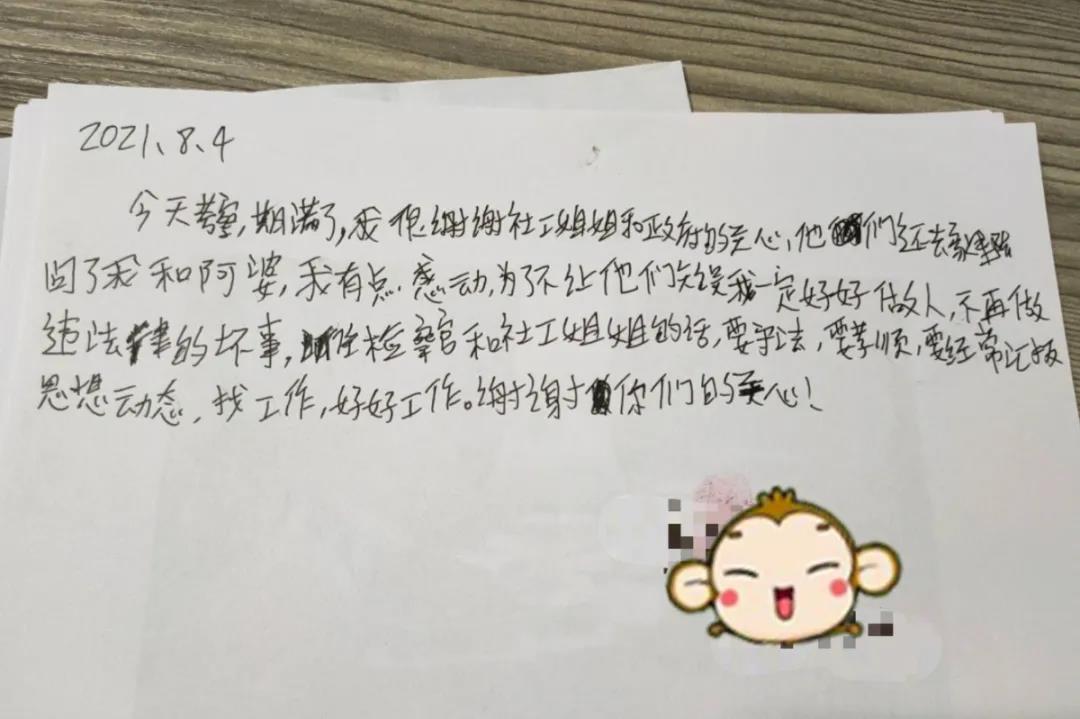 2021、8、4
今天考察期满了,我很谢谢社工姐姐和政府的关心,他们还去家里慰
问了我和阿婆,我有点感动,为了不让他们失望我一定好好做人,不再做
违法的坏事,听检察官和社工姐姐的话,要守法,要孝顺,要经常汇报
思想动态,找工作,好好工作。谢谢你们的关心!